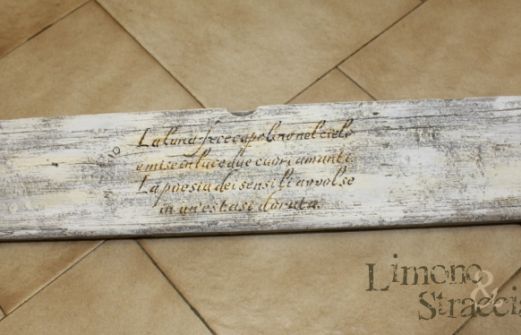 La luna fece capolino nel cielo
e mise in luce due cuori amanti.
La poesia dei sensi li avvolse
in un'estasi dorata.
Limono & Stracci